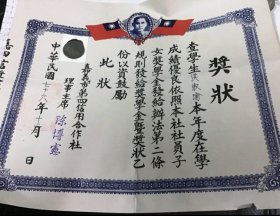 獎狀
查學生本年度在學
成績優良依照本社社員子
女獎學金發給辦法第二條
規則發給獎學金暨獎狀乙
份以資鼓勵
此狀
嘉義市第四信用合作社
理事主席
中華民國七十八年十月日